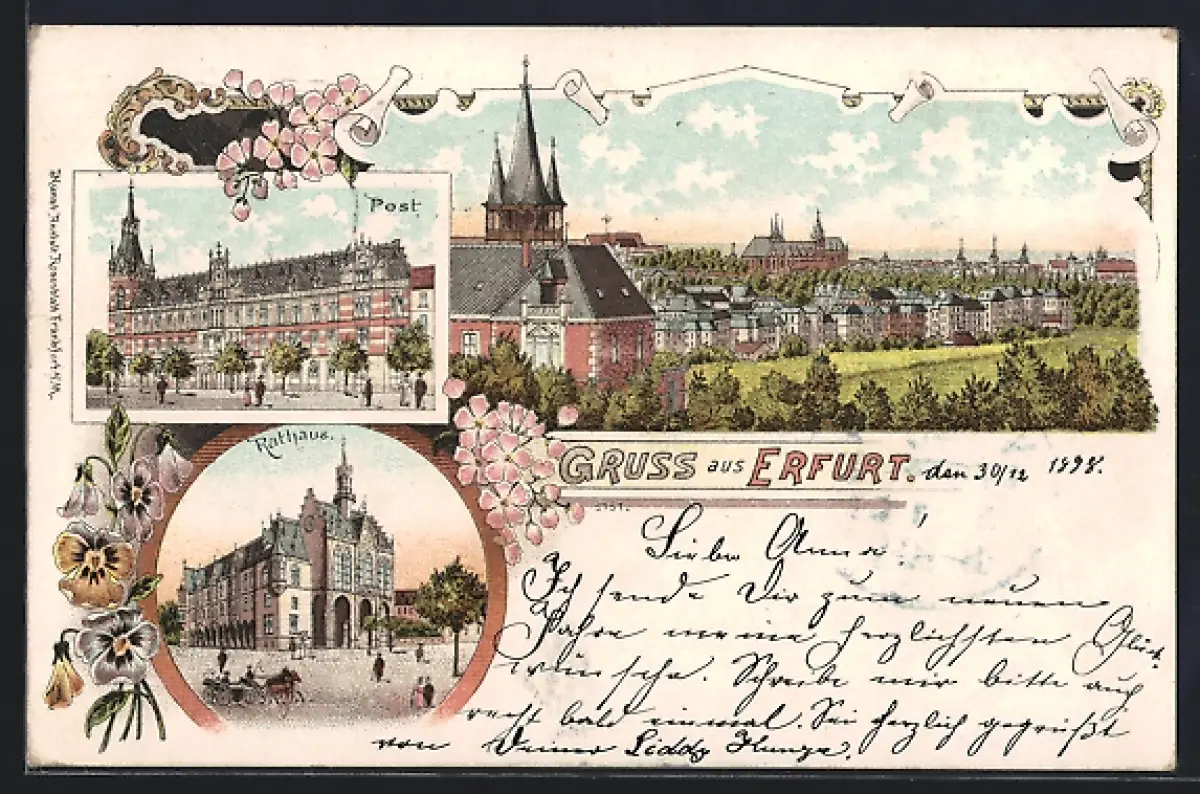 Post
Rathaus.
GRUSS aus ERFURT. den 30/12 1898.
5151.
Liebe Anna!
Ich sende Dir zum neuen
Jahre meine herzlichsten Glück-
wünsche. Schreibe mir bitte auch
recht bald einmal. Sei herzlich gegrüßt
von Deiner Liddy